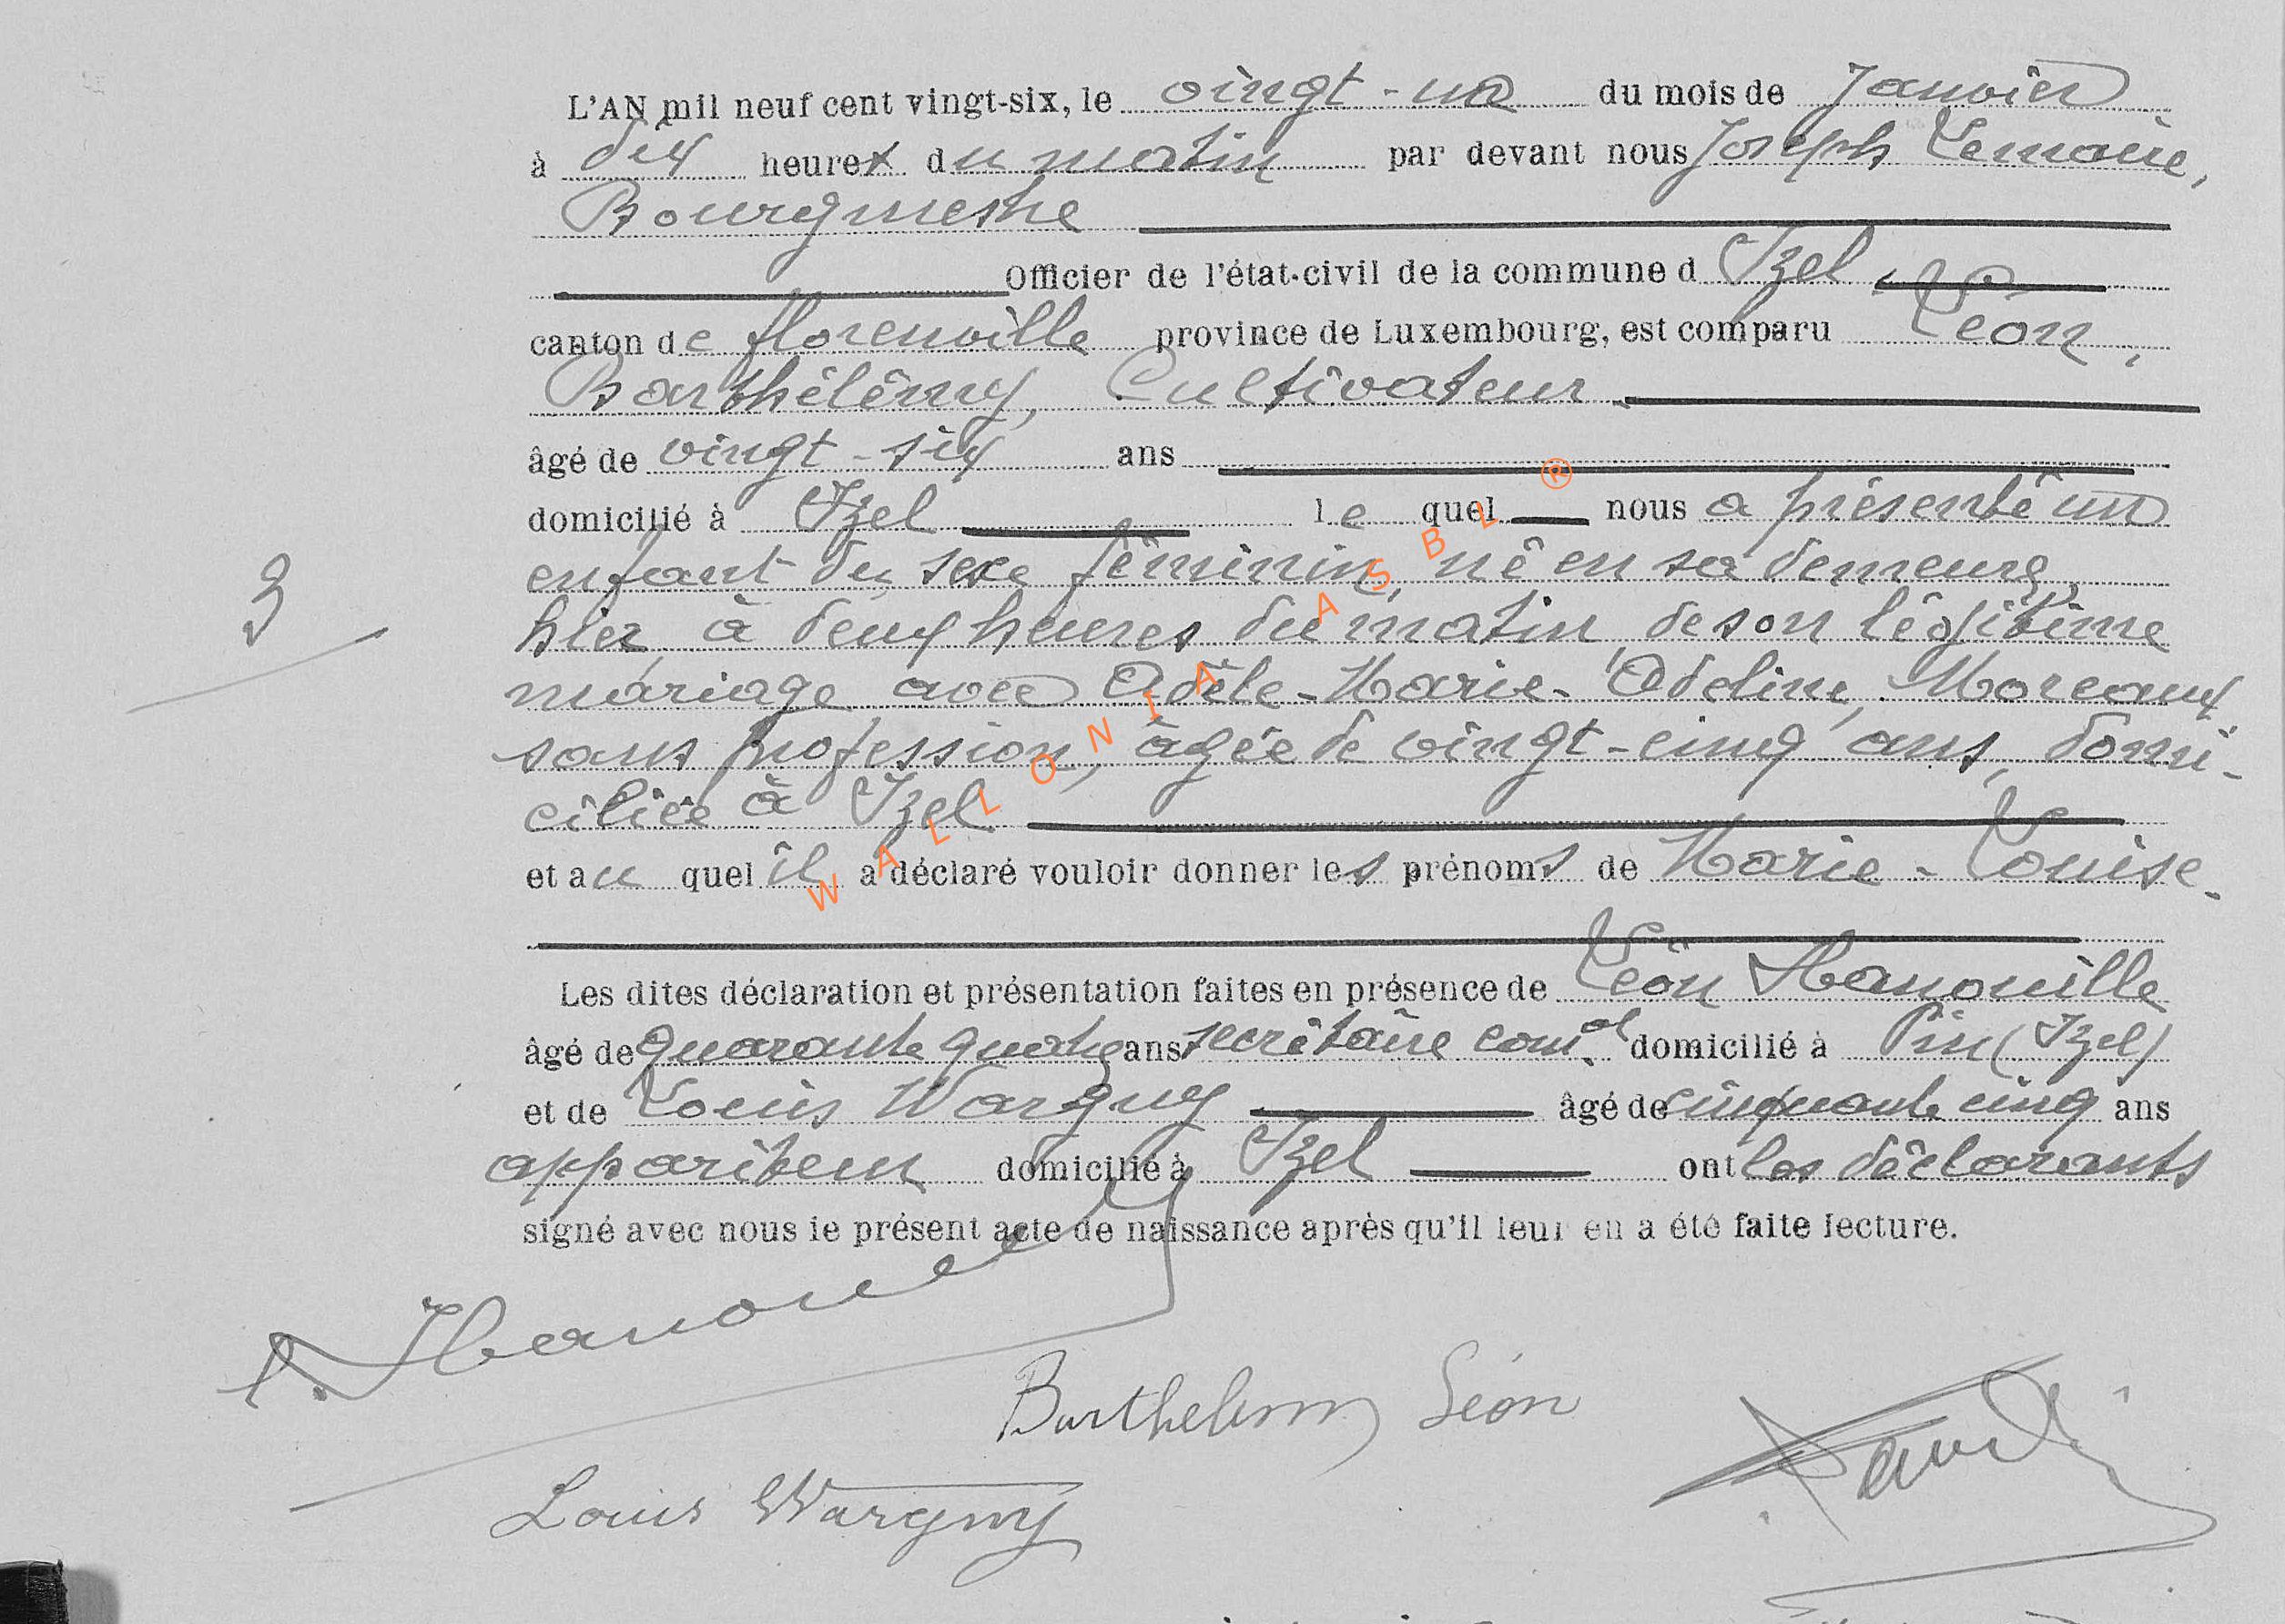 L'AN mil neuf cent vingt-six, le vingt-un du mois de Janvier
à dix heures du matin par devant nous Joseph Lemaire,
Bourgmestre
Officier de l'état-civil de la commune d Izel
canton de Florenville province de Luxembourg, est comparu Léon,
Barthélémy, Cultivateur
âgé de vingt-six ans
domicilié à Izel lequel nous a présenté un
enfant du sexe féminin, né en sa demeure,
hier, à deux heures du matin, de son légitime
mariage avec Adèle-Marie-Adeline, Moreaux,
sans profession, âgée de vingt-cinq ans, domi-
ciliée à Izel
et au quel il a déclaré vouloir donner les prénoms de Marie-Louise.
Les dites déclaration et présentation faites en présence de Léon Hanouille
âgé de quarante quatre ans secrétaire com.al domicilié à Pin (Izel)
et de Louis Wargny âgé de cinquante cinq ans
appariteur domicilié à Izel ont les déclarants
signé avec nous le présent acte de naissance après qu'il leur en a été faite lecture.
3
WALLONIA ASBL ®
Barthelemy Léon
Louis Wargny